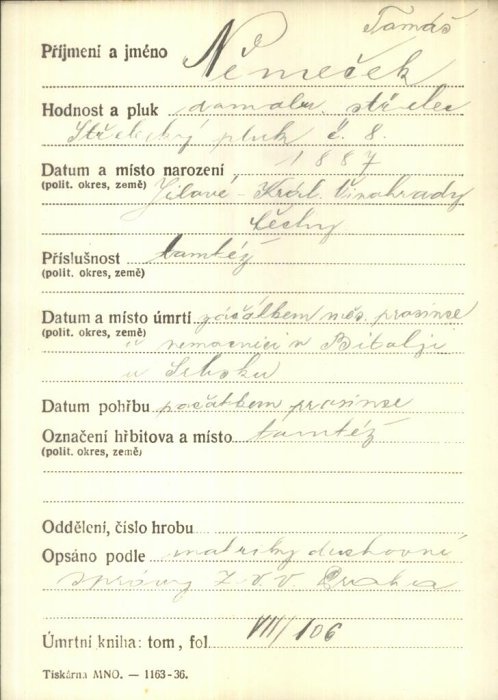 Tomáš
Příjmení a jméno Němeček
Hodnost a pluk domobr. střelec
Střelecký pluk č. 8.
Datum a místo narození 1887
(polit. okres, země) Jílové - Král. Vinohrady
Čechy
Příslušnost tamtéž
(polit. okres, země)
Datum a místo úmrtí začátkem měs. prosince
(polit. okres, země) v nemocnici v Bitolji
v Srbsku
Datum pohřbu počátkem prosince
Označení hřbitova a místo tamtéž
(polit. okres, země)
Oddělení, číslo hrobu
Opsáno podle matriky duchovní
správy Z.V.V. Praha
Úmrtní kniha: tom, fol. VIII/106
Tiskárna MNO. — 1163-36.